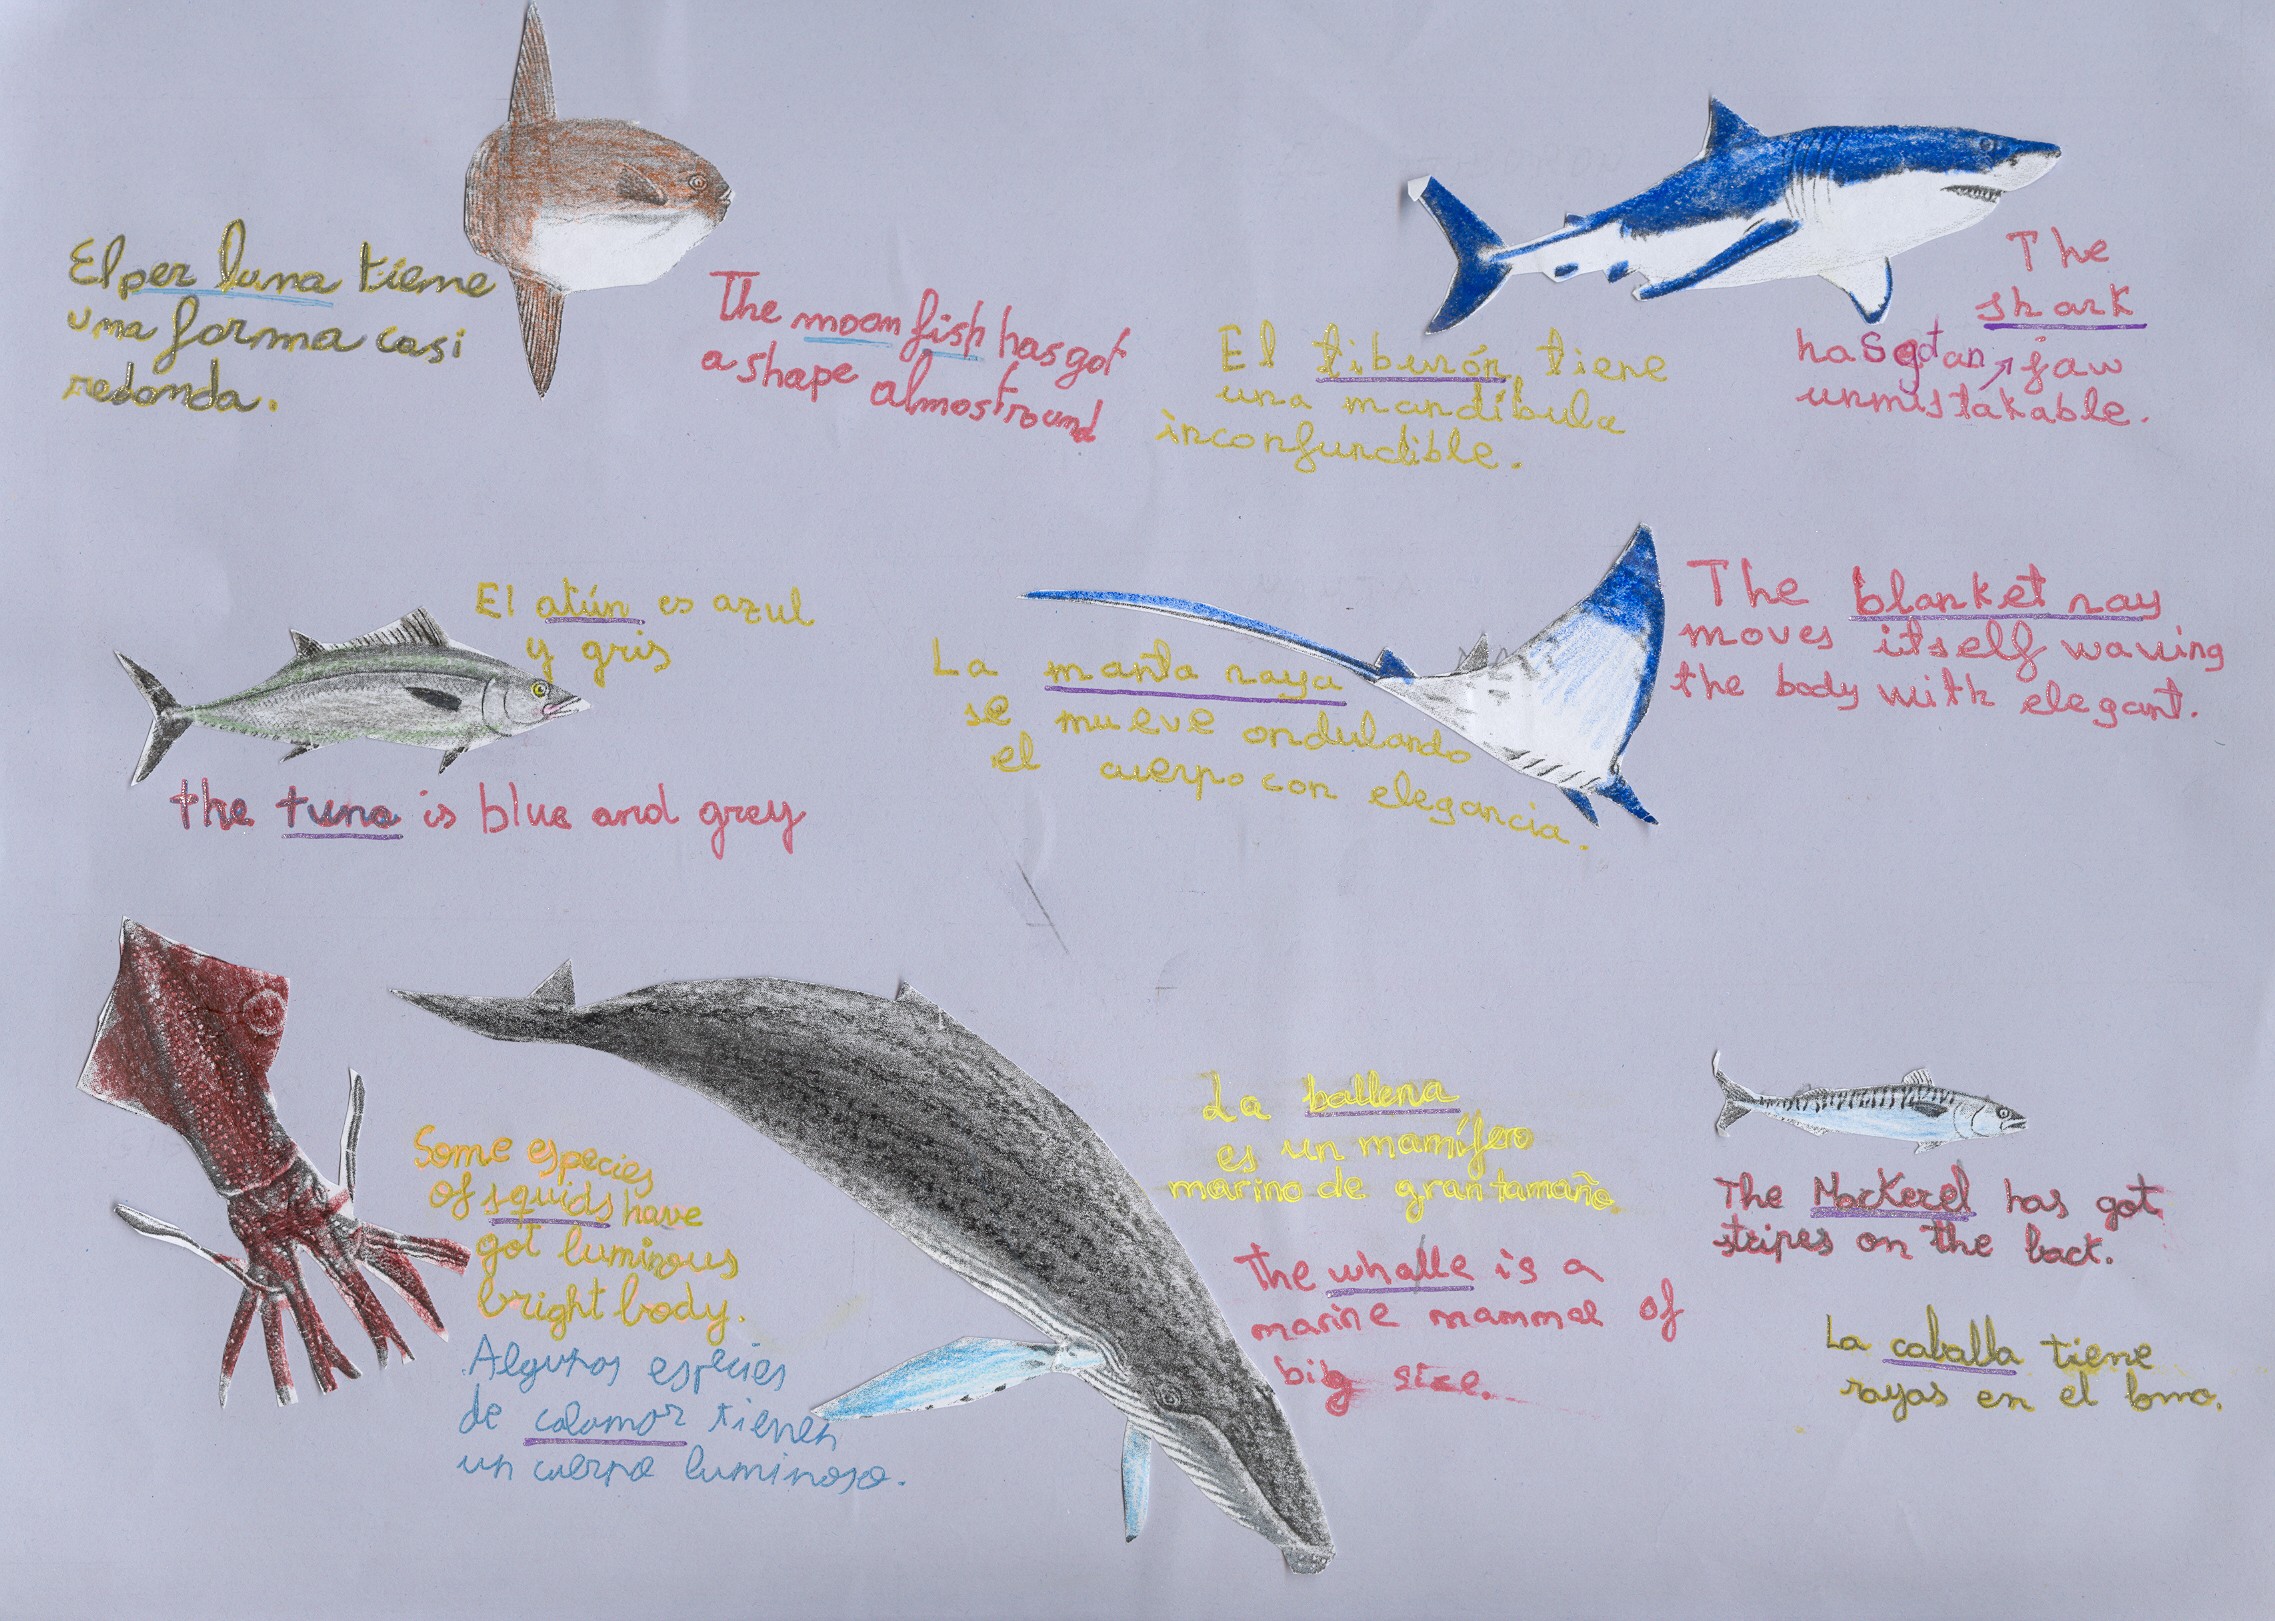 El per luna tiene
una forma casi
redonda.
The moon fish has got
a shape almost round
El tiburón tiene
una mandíbula
inconfundible.
The
shark
has got an jaw
unmistakable.
El atún es azul
y gris
the tuna is blue and grey
La manta raya
se mueve ondulando
el cuerpo con elegancia.
The blanket ray
moves itself waving
the body with elegant.
Some especies
of squids have
got luminous
bright body.
Algunos especies
de calamar tienen
un cuerpo luminoso.
La ballena
es un mamífero
marino de gran tamaño.
The whalle is a
marine mammal of
big size.
The Mackerel has got
stripes on the back.
La caballa tiene
rayas en el lomo.